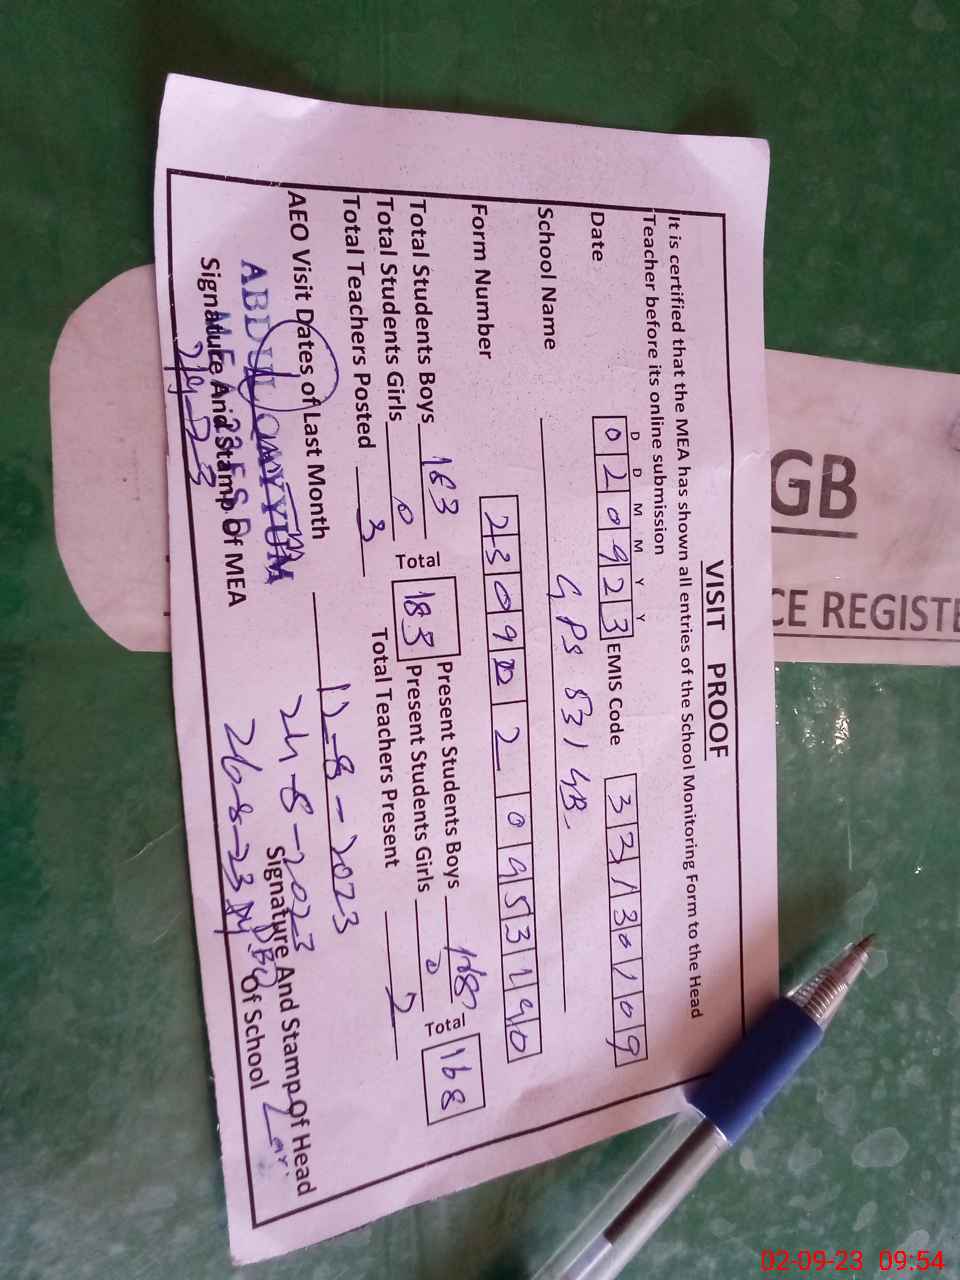 VISIT PROOF
It is certified that the MEA has shown all entries of the School Monitoring Form to the Head
Teacher before its online submission
D D M M Y Y
Date 020923 EMIS Code 33130109
School Name GPS 531 GB.
Form Number
Total Students Boys 183 Present Students Boys 168
Total Students Girls 0 Total 183 Present Students Girls 0 Total 168
Total Teachers Posted 3 Total Teachers Present 2
AEO Visit Dates of Last Month 12-8-2023
24-8-2023
26-8-23
ABDUL QAYYUM
Signature And Stamp Of MEA
Signature And Stamp Of Head
Of School
GB
CE REGISTE
02-09-23 09:54